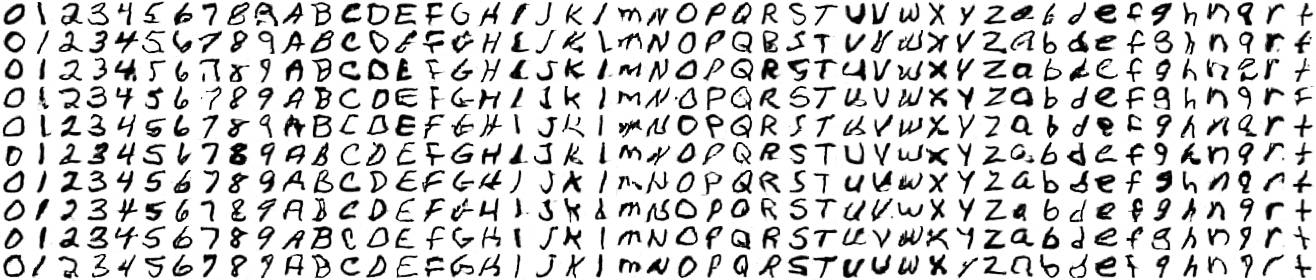 0 1 2 3 4 5 6 7 8 9 A B C D E F G H I J K L m N O P Q R S T U V W X Y Z a b d e f g h n q r t
0 1 2 3 4 5 6 7 8 9 A B C D E F G H I J K L m N O P Q R S T U V W X Y Z a b d e f g h n q r t
0 1 2 3 4 5 6 7 8 9 A B C D E F G H I J K L m N O P Q R S T U V W X Y Z a b d e f g h n q r t
0 1 2 3 4 5 6 7 8 9 A B C D E F G H I J K L m N O P Q R S T U V W X Y Z a b d e f g h n q r t
0 1 2 3 4 5 6 7 8 9 A B C D E F G H I J K L m N O P Q R S T U V W X Y Z a b d e f g h n q r t
0 1 2 3 4 5 6 7 8 9 A B C D E F G H I J K L m N O P Q R S T U V W X Y Z a b d e f g h n q r t
0 1 2 3 4 5 6 7 8 9 A B C D E F G H I J K L m N O P Q R S T U V W X Y Z a b d e f g h n q r t
0 1 2 3 4 5 6 7 8 9 A B C D E F G H I J K L m N O P Q R S T U V W X Y Z a b d e f g h n q r t
0 1 2 3 4 5 6 7 8 9 A B C D E F G H I J K L m N O P Q R S T U V W X Y Z a b d e f g h n q r t
0 1 2 3 4 5 6 7 8 9 A B C D E F G H I J K L m N O P Q R S T U V W X Y Z a b d e f g h n q r t